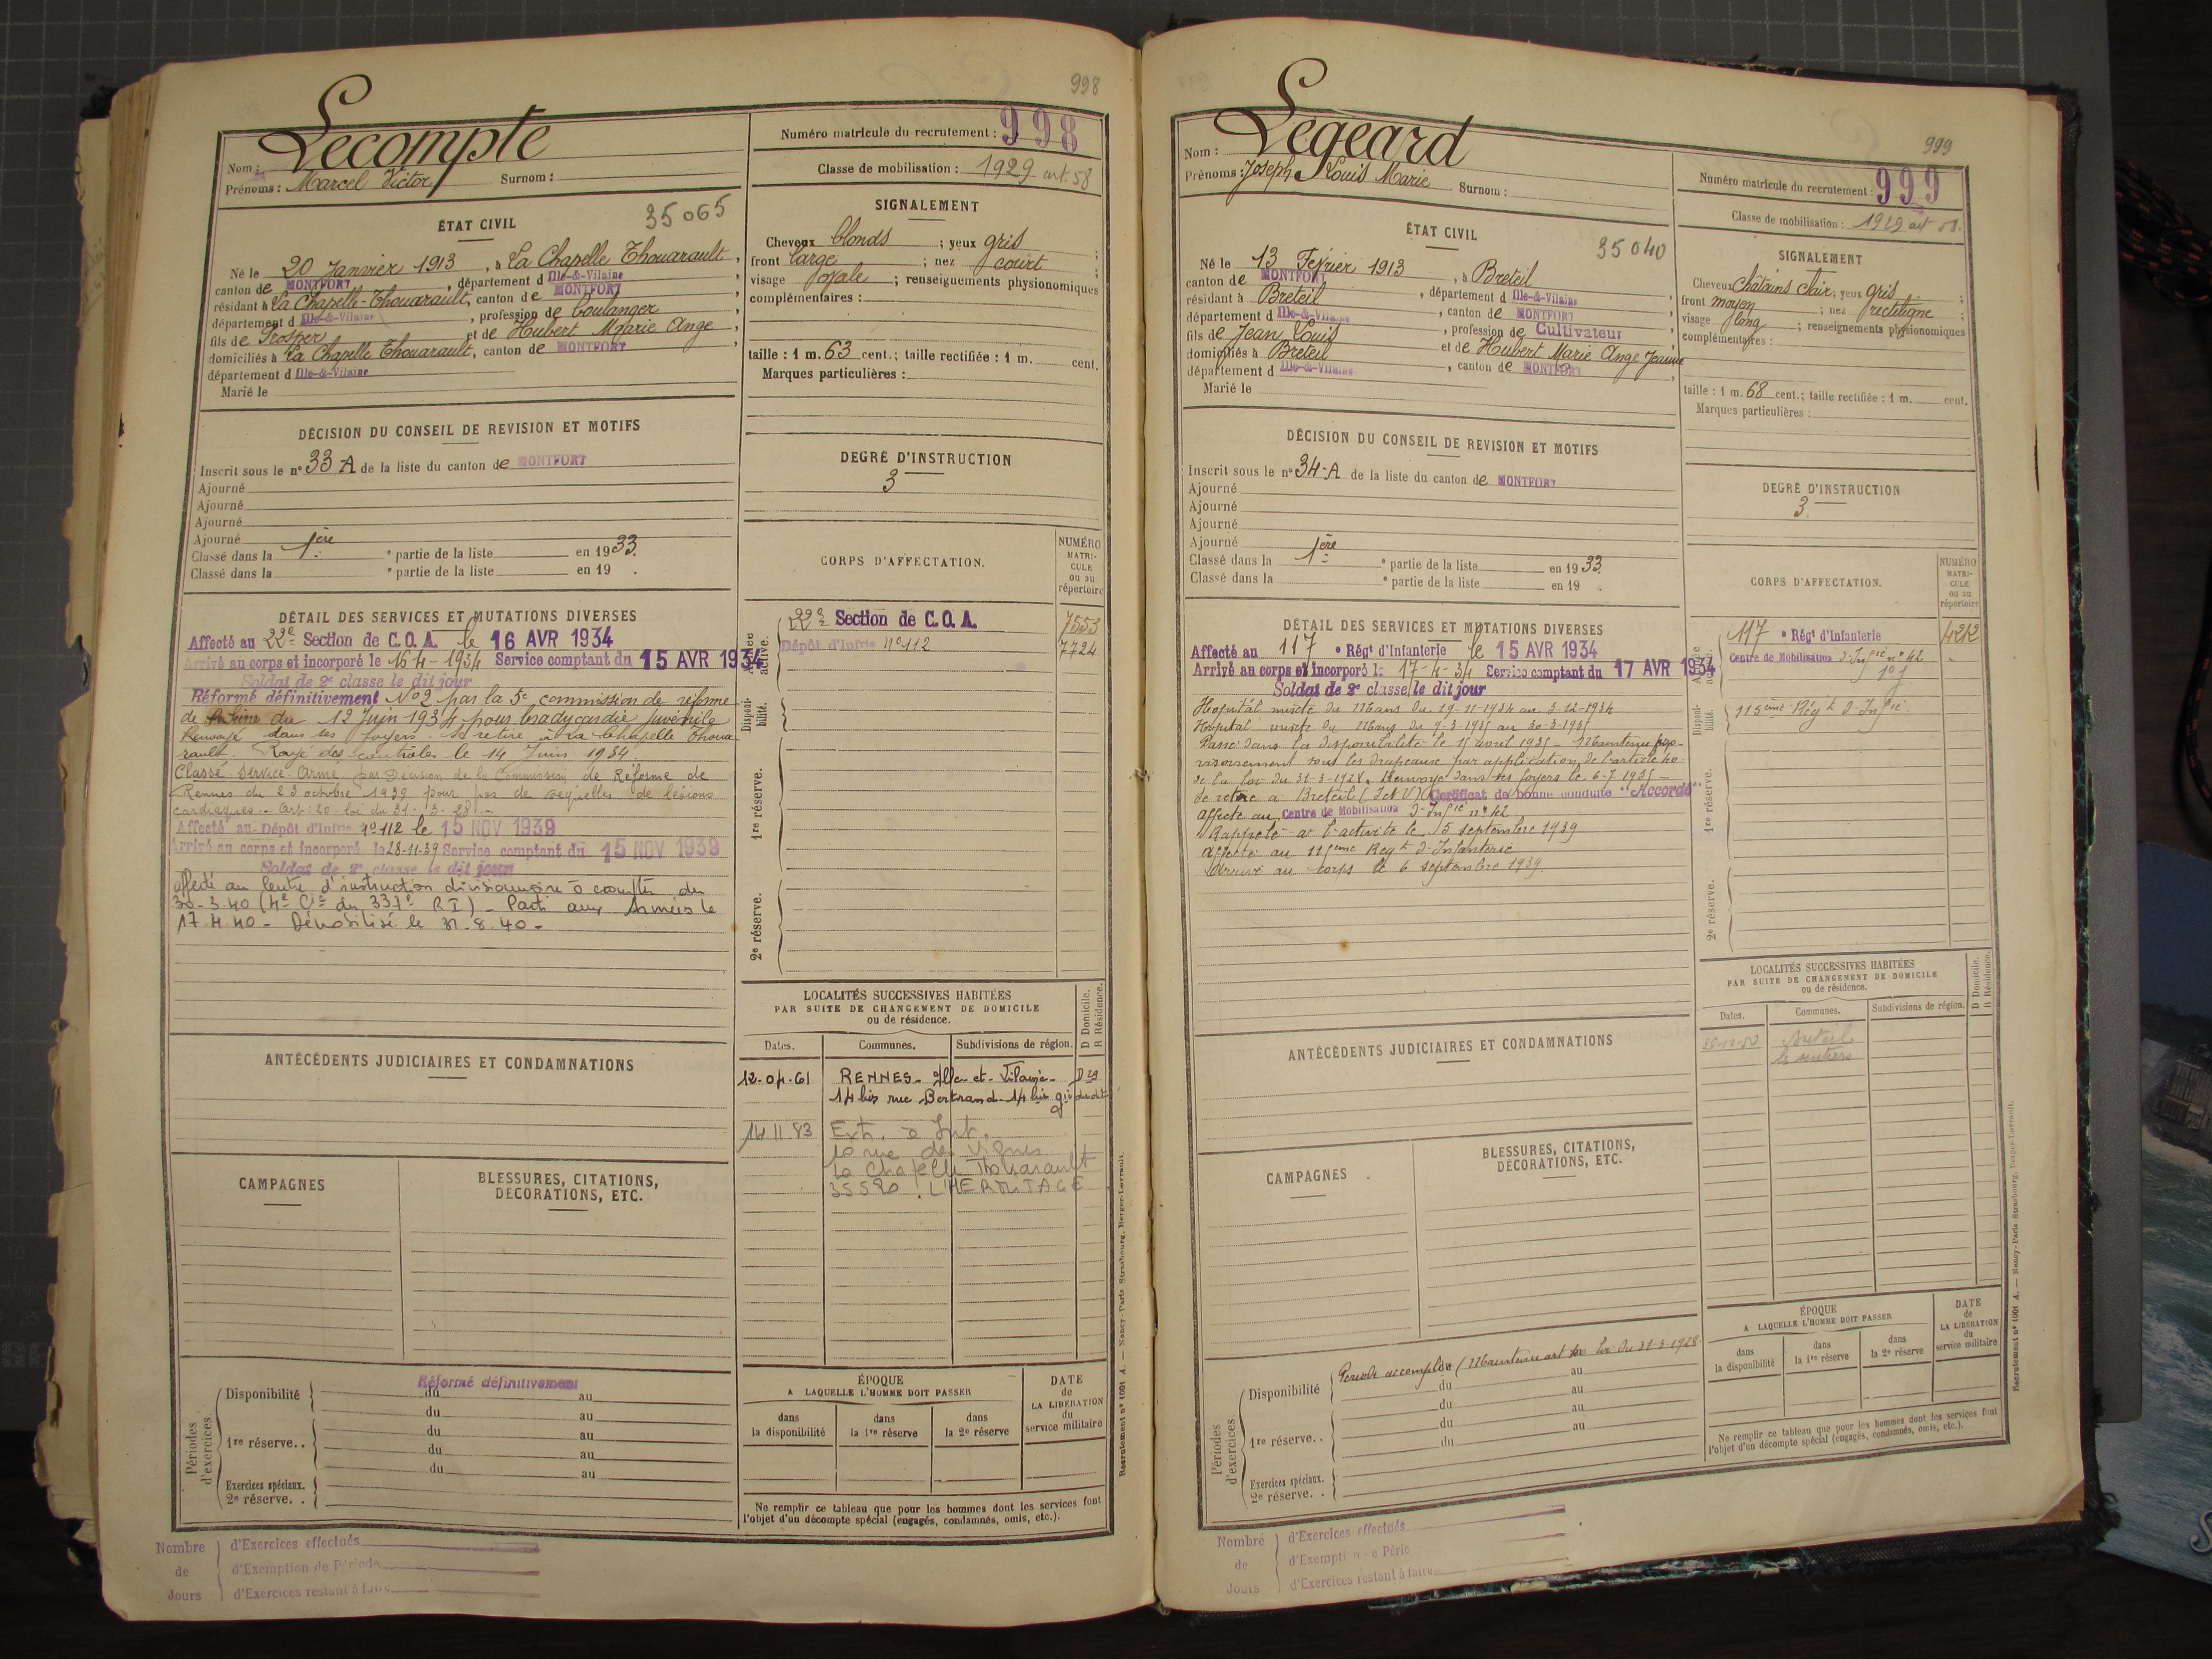 998
Lecompte
Nom :
Prénoms : Marcel Victor Surnom :
Numéro matricule du recrutement : 998
Classe de mobilisation : 1929 art. 58
ÉTAT CIVIL
35065
Né le 20 Janvier 1913, à La Chapelle Thouarault,
canton de MONTFORT, département d Ille-&-Vilaine,
résidant à La Chapelle-Thouarault, canton de MONTFORT,
département d Ille-&-Vilaine, profession de boulanger
fils de Prosper et de Hubert Marie Ange,
domiciliés à La Chapelle Thouarault, canton de MONTFORT,
département d Ille-&-Vilaine
Marié le
SIGNALEMENT
Cheveux blonds ; yeux gris ;
front large ; nez court ;
visage ovale ; renseignements physionomiques
complémentaires :
taille : 1 m. 63 cent. ; taille rectifiée : 1 m. cent.
Marques particulières :
DÉCISION DU CONSEIL DE REVISION ET MOTIFS
Inscrit sous le n° 33-A de la liste du canton de MONTFORT
Ajourné
Ajourné
Ajourné
Ajourné
Classé dans la 1ère e partie de la liste en 1933.
Classé dans la e partie de la liste en 19 .
DEGRÉ D'INSTRUCTION
3
CORPS D'AFFECTATION.
NUMÉRO
MATRI-
CULE
ou au
répertoire
Armée active.
22e Section de C.O.A. 7553
Dépôt d'Infrie n° 112 7724
Disponi-
bilité.
1re réserve.
2e réserve.
DÉTAIL DES SERVICES ET MUTATIONS DIVERSES
Affecté au 22e Section de C.O.A. le 16 AVR 1934
Arrivé au corps et incorporé le 16-4-1934 Service comptant du 15 AVR 1934
Soldat de 2e classe le dit jour
Réformé définitivement N°2 par la 5e commission de réforme
de du 12 Juin 1934 pour bradycardie juvénile
Renvoyé dans ses foyers. Se retire à La Chapelle Thoua-
rault. Rayé des contrôles le 14 Juin 1934.
Classé Service Armé par Décision de la Commission de Réforme de
Rennes du 23 octobre 1939 pour pas de séquelles de lésions
cardiaques. Art. 20 loi du 31-3-28.
Affecté au Dépôt d'Infrie n° 112 le 15 NOV 1939
Arrivé au corps et incorporé le 28-11-39 Service comptant du 15 NOV 1939
Soldat de 2e classe le dit jour
affecté au Centre d'instruction divisionnaire à compter du
30-3-40 (4e Cie du 337e RI) - Parti aux Armées le
17.4.40 - Démobilisé le 31.8.40 -
LOCALITÉS SUCCESSIVES HABITÉES
PAR SUITE DE CHANGEMENT DE DOMICILE
ou de résidence.
D Domicile.
R Résidence.
Dates. Communes. Subdivisions de région.
12-04-61 RENNES - Ille-et-Vilaine
14 bis rue Bertrand - 14 bis
14 11 83
10 rue des Vignes
La Chapelle Thouarault
35590 L'HERMITAGE
ANTÉCÉDENTS JUDICIAIRES ET CONDAMNATIONS
CAMPAGNES
BLESSURES, CITATIONS,
DÉCORATIONS, ETC.
Périodes
d'exercices.
Réformé définitivement
Disponibilité du au
du au
1re réserve. . du au
du au
du au
Exercices spéciaux.
2e réserve. .
ÉPOQUE
A LAQUELLE L'HOMME DOIT PASSER
dans la disponibilité
dans la 1re réserve
dans la 2e réserve
DATE
de
LA LIBÉRATION
du
service militaire
Ne remplir ce tableau que pour les hommes dont les services font
l'objet d'un décompte spécial (engagés, condamnés, omis, etc.).
Recrutement n° 1001 A. — Nancy-Paris-Strasbourg, Berger-Levrault.
Nombre de Jours
d'Exercices effectués
d'Exemption de Période
d'Exercices restant à faire
999
Legeard
Nom :
Prénoms : Joseph Louis Marie Surnom :
Numéro matricule du recrutement : 999
Classe de mobilisation : 1929 art 58.
ÉTAT CIVIL
35040
Né le 13 Février 1913, à Breteil
canton de MONTFORT, département d Ille-&-Vilaine,
résidant à Breteil, canton de MONTFORT,
département d Ille-&-Vilaine, profession de Cultivateur
fils de Jean Louis et de Hubert Marie Ange Jeanne
domiciliés à Breteil, canton de MONTFORT,
département d Ille-&-Vilaine
Marié le
SIGNALEMENT
Cheveux châtains clair ; yeux gris ;
front moyen ; nez rectiligne ;
visage long ; renseignements physionomiques
complémentaires :
taille : 1 m. 68 cent. ; taille rectifiée : 1 m. cent.
Marques particulières :
DÉCISION DU CONSEIL DE REVISION ET MOTIFS
Inscrit sous le n° 34-A de la liste du canton de MONTFORT
Ajourné
Ajourné
Ajourné
Ajourné
Classé dans la 1ère e partie de la liste en 1933.
Classé dans la e partie de la liste en 19 .
DEGRÉ D'INSTRUCTION
3
CORPS D'AFFECTATION.
NUMÉRO
MATRI-
CULE
ou au
répertoire
117 e Régt d'Infanterie 4212
Centre de Mobilisation d'Infie n° 42
115eme Régt d'Infie
Disponi-
bilité.
1re réserve.
2e réserve.
DÉTAIL DES SERVICES ET MUTATIONS DIVERSES
Affecté au 117 e Régt d'Infanterie le 15 AVR 1934
Arrivé au corps et incorporé le 17-4-34 Service comptant du 17 AVR 1934
Soldat de 2e classe le dit jour
Hopital mixte du Mans du 19-11-1934 au 3-12-1934
Hopital mixte du Mans du 9-3-1935 au 30-3-1935
Passé dans la disponibilité le 15 avril 1935 - Maintenu pro-
visoirement sous les drapeaux par application de l'article 40
de la loi du 31-3-1928. Renvoyé dans ses foyers le 6-7-1935 -
Se retire à Breteil (I et V) Certificat de bonne conduite "Accordé"
affecté au Centre de Mobilisation d'Infie n° 42
Rappelé à l'activité le 5 septembre 1939
Affecté au 115eme Regt d'Infanterie
Arrivé au corps le 6 septembre 1939.
LOCALITÉS SUCCESSIVES HABITÉES
PAR SUITE DE CHANGEMENT DE DOMICILE
ou de résidence.
D Domicile.
R Résidence.
Dates. Communes. Subdivisions de région.
Breteil
ANTÉCÉDENTS JUDICIAIRES ET CONDAMNATIONS
CAMPAGNES
BLESSURES, CITATIONS,
DÉCORATIONS, ETC.
Périodes
d'exercices.
Période accomplie (Maintenu art 40 loi du 31-3-1928
Disponibilité du au
du au
1re réserve. . du au
du
Exercices spéciaux.
2e réserve. .
ÉPOQUE
A LAQUELLE L'HOMME DOIT PASSER
dans la disponibilité
dans la 1re réserve
dans la 2e réserve
DATE
de
LA LIBÉRATION
du
service militaire
Ne remplir ce tableau que pour les hommes dont les services font
l'objet d'un décompte spécial (engagés, condamnés, omis, etc.).
Recrutement n° 1001 A. — Nancy-Paris-Strasbourg, Berger-Levrault.
Nombre de Jours
d'Exercices effectués
d'Exempti e Pério
d'Exercices restant à faire